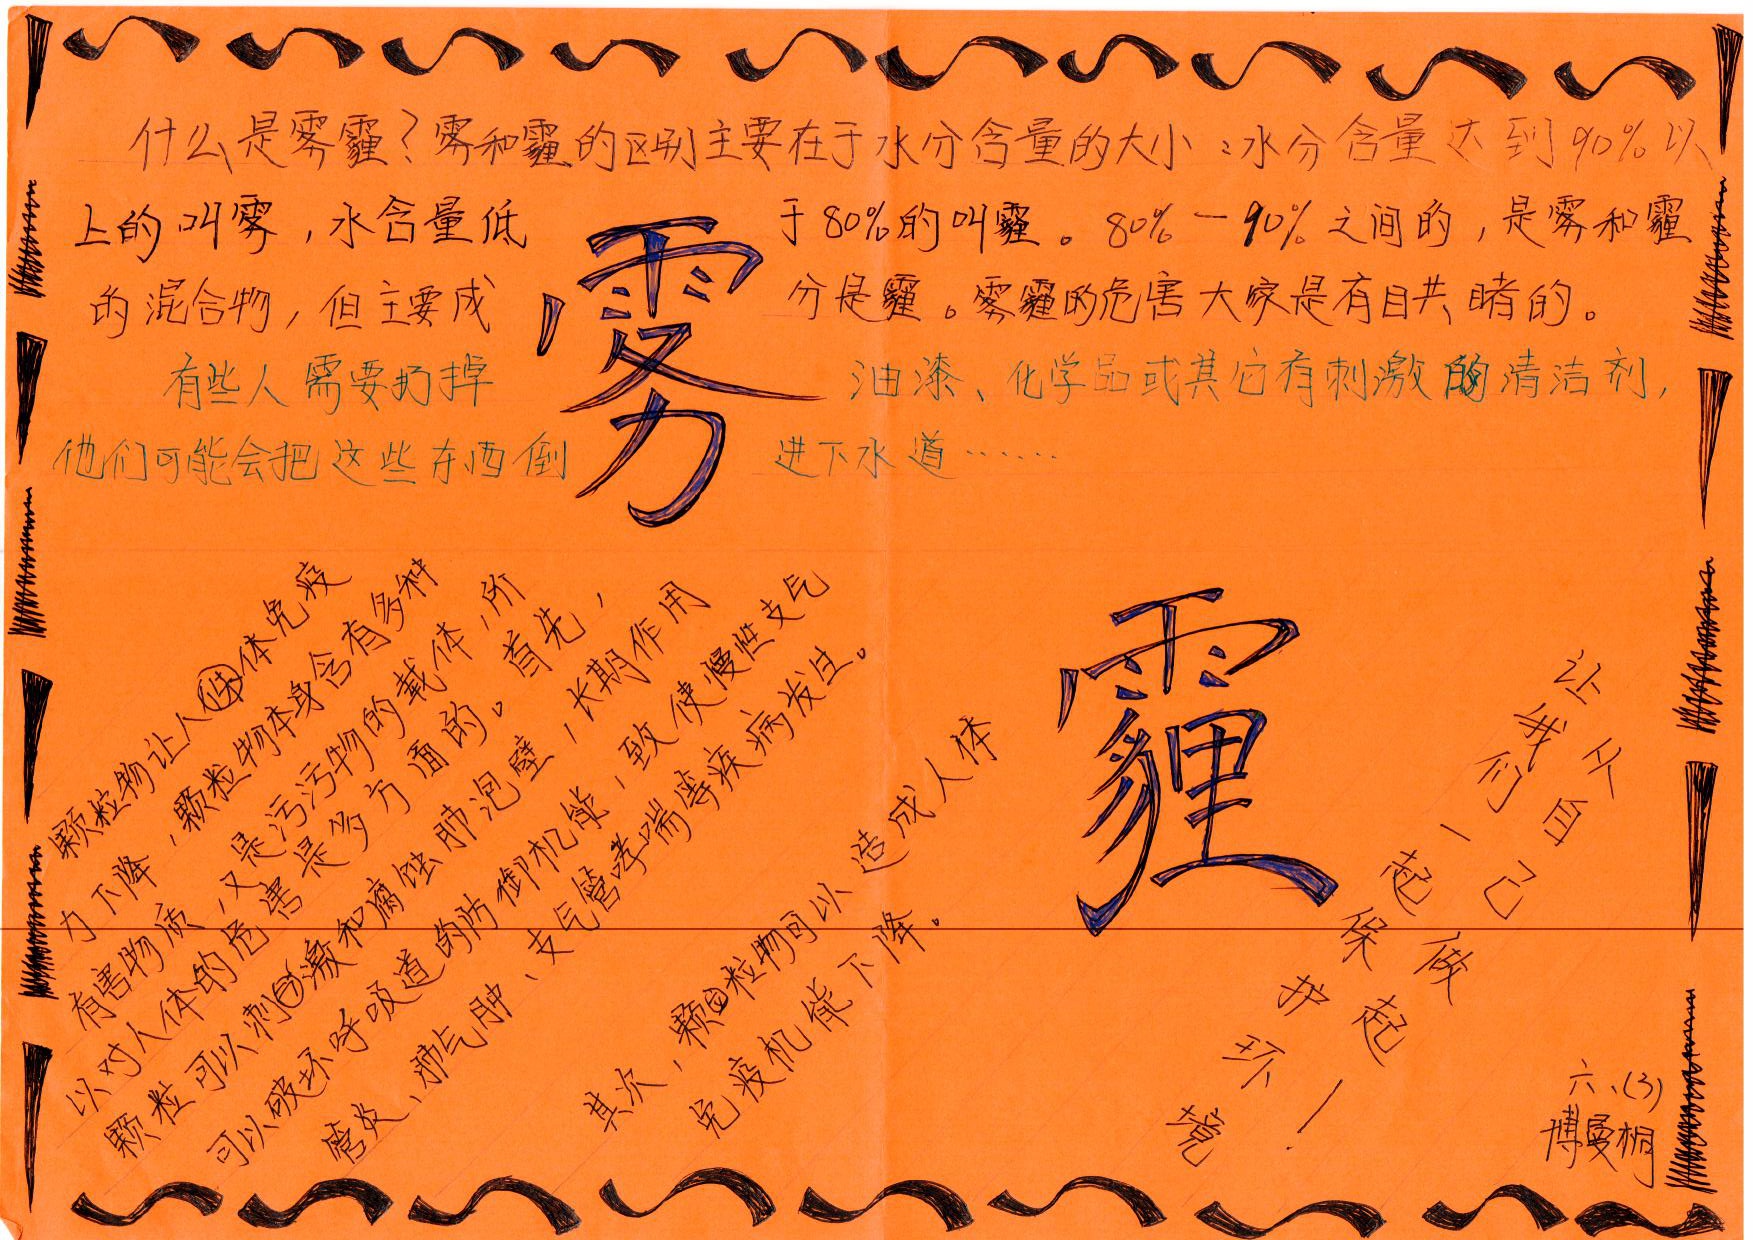 什么是雾霾?雾和霾的区别主要在于水分含量的大小:水分含量达到90%以
上的叫雾,水含量低于80%的叫霾。80%—90%之间的,是雾和霾
的混合物,但主要成分是霾。雾霾的危害大家是有目共睹的。
有些人需要扔掉油漆、化学品或其它有刺激的清洁剂,
他们可能会把这些东西倒进下水道……
雾
霾
颗粒物让人体免疫
力下降,颗粒物本身含有多种
有害物质,又是污污物的载体,所
以对人体的危害是多方面的。首先,
颗粒可以刺激和腐蚀肺泡壁,长期作用
可以破坏呼吸道的防御机能,致使慢性支气
管炎、肺气肿、支气管哮喘等疾病发生。
其次,颗粒物可以造成人体
免疫机能下降。
让我们一起保护环境
从自己做起!
六、(3)
博曼桐